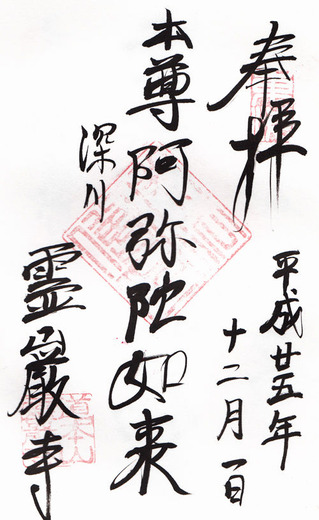 奉拝
平成廿五年
十二月一日
本尊阿弥陀如来
深川
霊巌寺